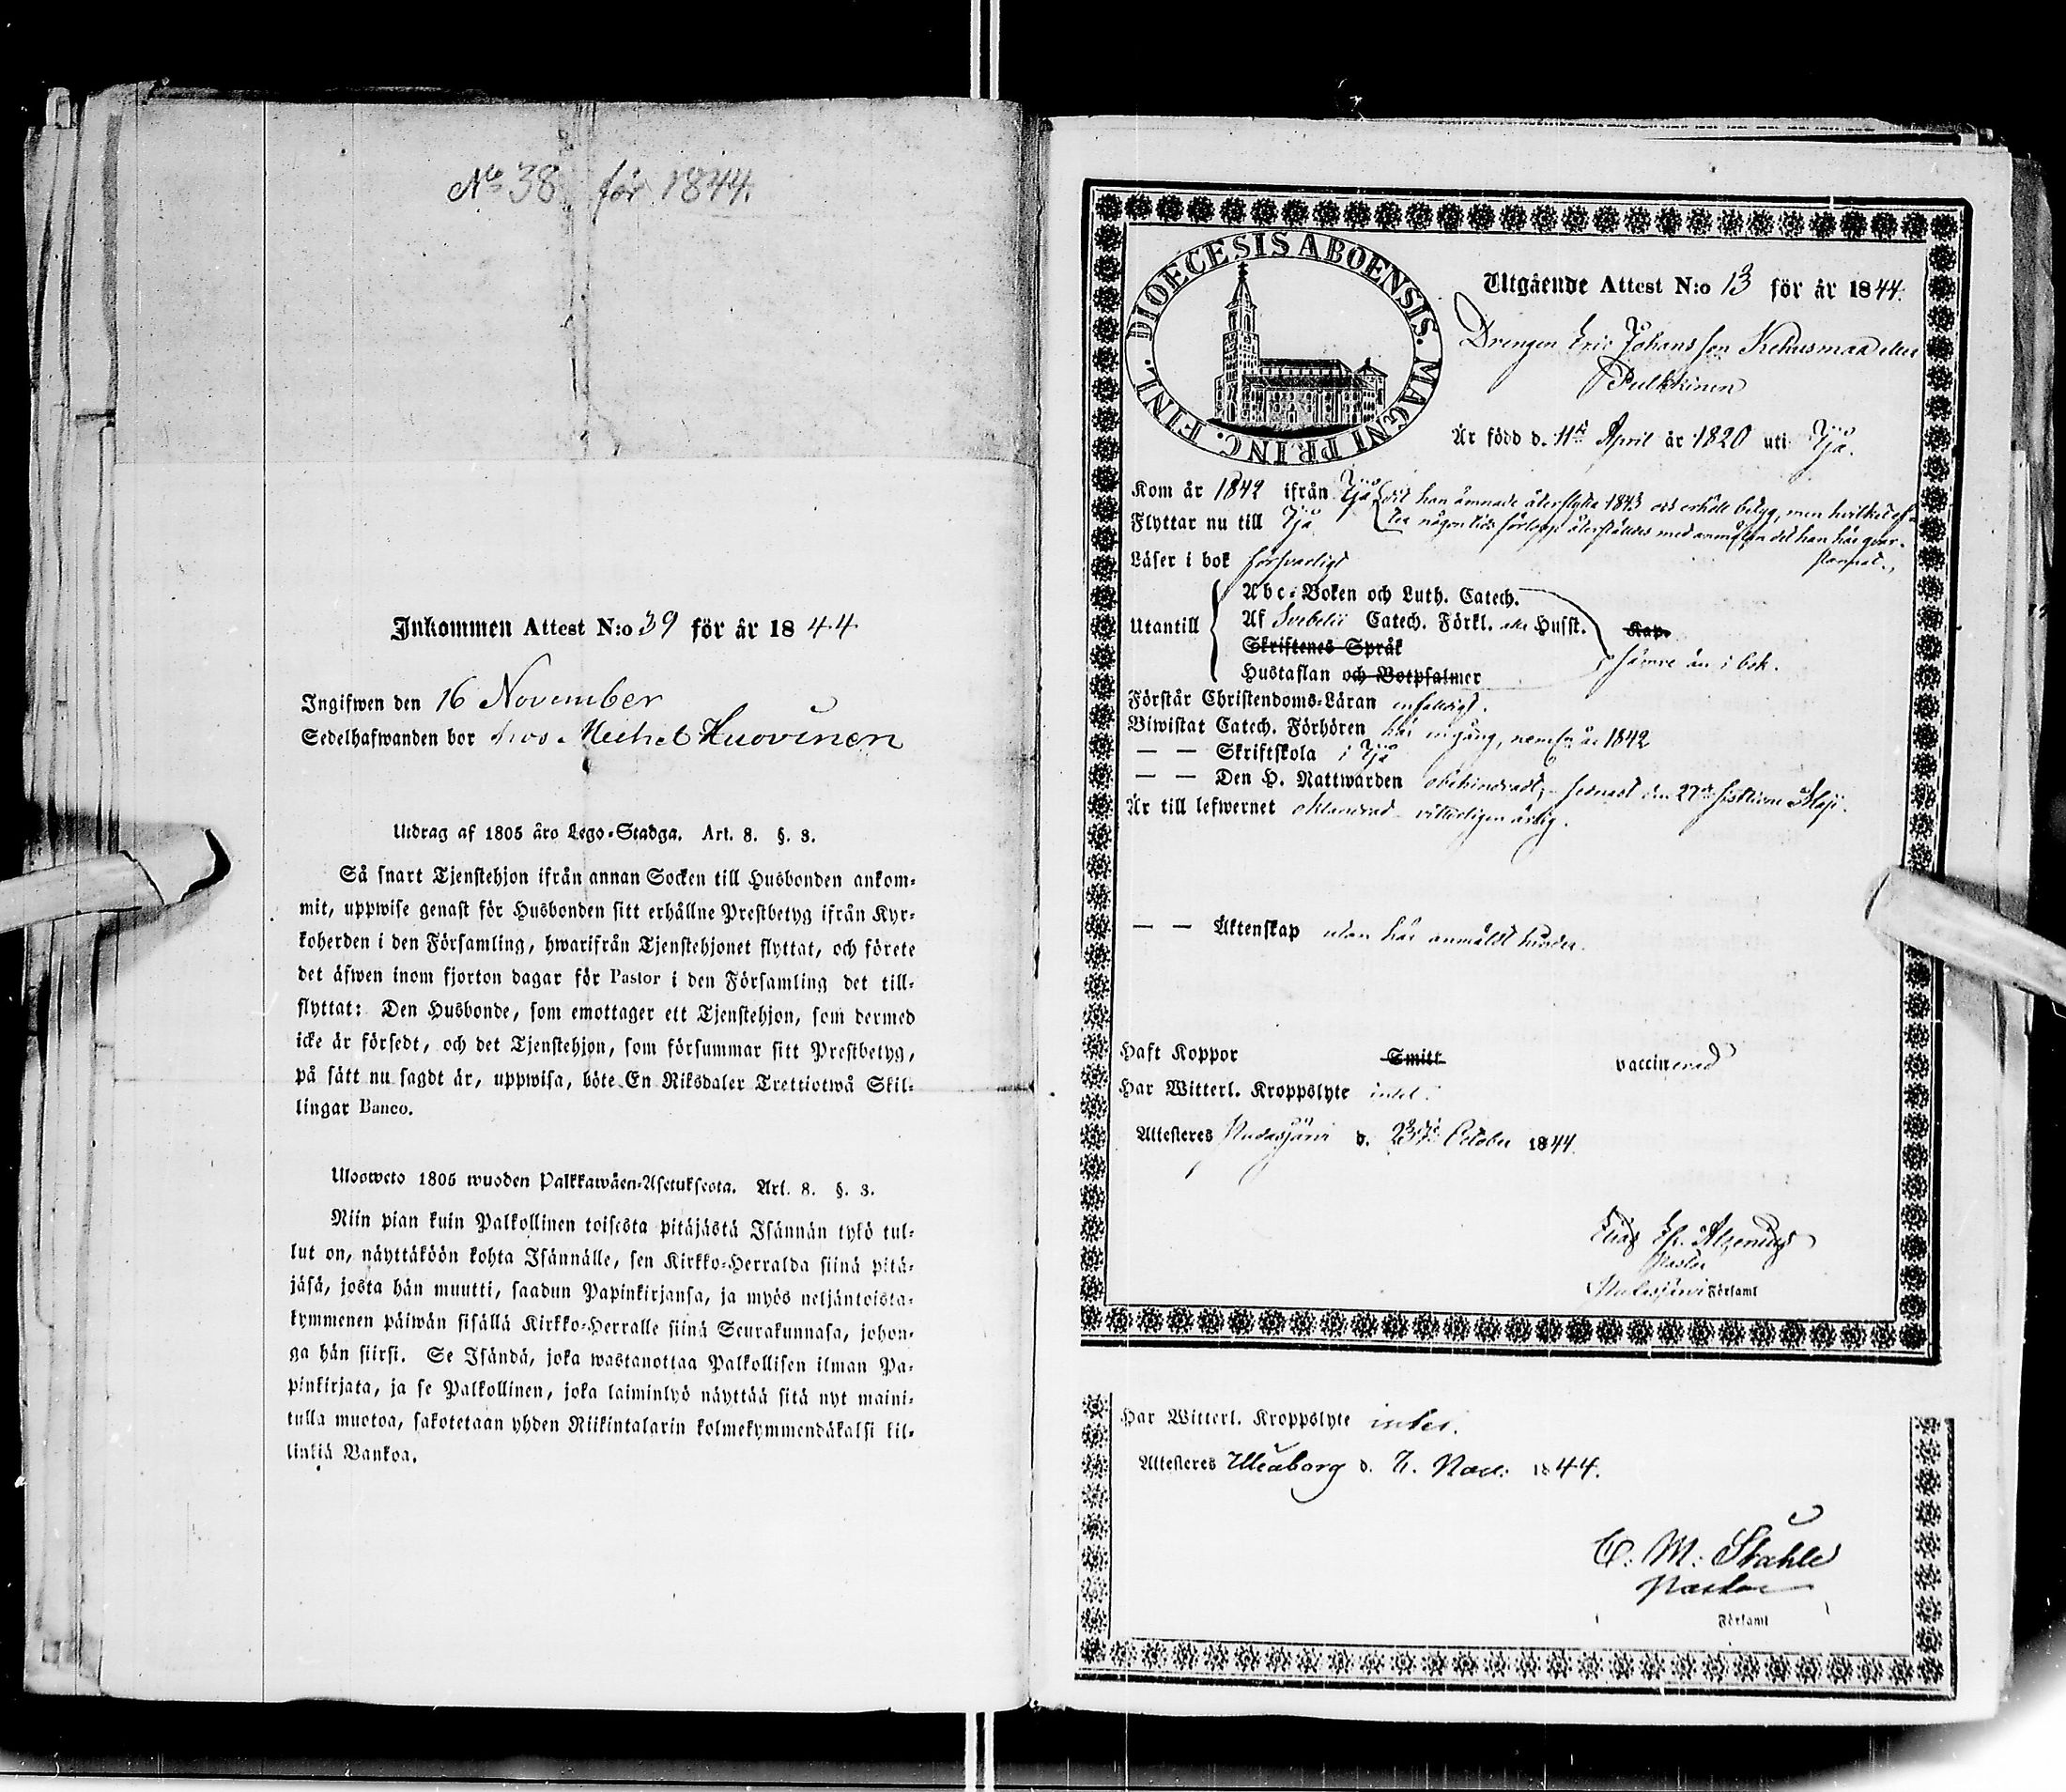 No 38 för 1844.
Inkommen Attest N:o 39 för år 1844
Ingifwen den 16 November
Sedelhafwanden bor hos Michel Huovinen
Utdrag af 1805 års Lego-Stadga. Art. 8. §. 3.
Så snart Tjenstehjon ifrån annan Socken till Husbonden ankom-
mit, uppwise genast för Husbonden sitt erhållne Prestbetyg ifrån Kyr-
koherden i den Församling, hwarifrån Tjenstehjonet flyttat, och förete
det äfwen inom fjorton dagar för Pastor i den Församling det till-
flyttat: Den Husbonde, som emottager ett Tjenstehjon, som dermed
icke är försedt, och det Tjenstehjon, som försummar sitt Prestbetyg,
på sätt nu sagdt är, uppwisa, böte En Riksdaler Trettiotwå Skil-
lingar Banco.
Ulosweto 1805 wuoden Palkkawäen-Asetuksesta. Art. 8. §. 3.
Niin pian kuin Palkollinen toisesta pitäjästä Isännän tykö tul-
lut on, näyttäköön kohta Isännälle, sen Kirkko-Herralda siinä pitä-
jäsä, josta hän muutti, saadun Papinkirjansa, ja myös neljäntoista-
kymmenen päiwän sisällä Kirkko-Herralle siinä Seurakunnasa, johon-
ga hän siirsi. Se Isändä, joka wastanottaa Palkollisen ilman Pa-
pinkirjata, ja se Palkollinen, joka laiminlyö näyttää sitä nyt maini-
tulla muotoa, sakotetaan yhden Riikintalarin kolmekymmendäkaksi kil-
linkiä Bankoa.
DIOECESIS ABOENSIS. MAGNI PRINC. FINL.
Utgående Attest N:o 13 för år 1844.
Drengen Eric Johansson Kehusmaa eller
Pulkkinen
Är född d. 11te April år 1820 uti Ijå.
Kom år 1842 ifrån Ijå dit han ämnade återflytta 1843 och erhöll betyg, men hvilket ef-
Flyttar nu till Ijå ter någon tids förlopp återställdes med anmälan det han här qvar-
stannat.
Läser i bok försvarligt
Abc-Boken och Luth. Catech.
Utantill Af Svebelii Catech. Förkl. eller Husst. Kap.
Skriftenes Språk sämre än i bok.
Hustaflan och Botpsalmer
Förstår Christendoms-Läran enfaldigt.
Biwistat Catech. Förhören här en gång, neml. år 1842
— — Skriftskola i Ijå
— — Den H. Nattwarden obehindradt, sednast den 27de sistl. Maji.
Är till lefwernet oklandrad, vitterligen ärlig.
— — Äktenskap utan här anmäldt hinder.
Haft Koppor Smitt vaccinerad
Har Witterl. Kroppslyte intet.
Attesteres Pudasjärvi d. 23de October 1844.
Pastor
Pudasjärvi Församl
Har Witterl. Kroppslyte intet.
Attesteres Uleåborg d. 7. Nov. 1844.
C. M. Ståhle
Pastor
Församl